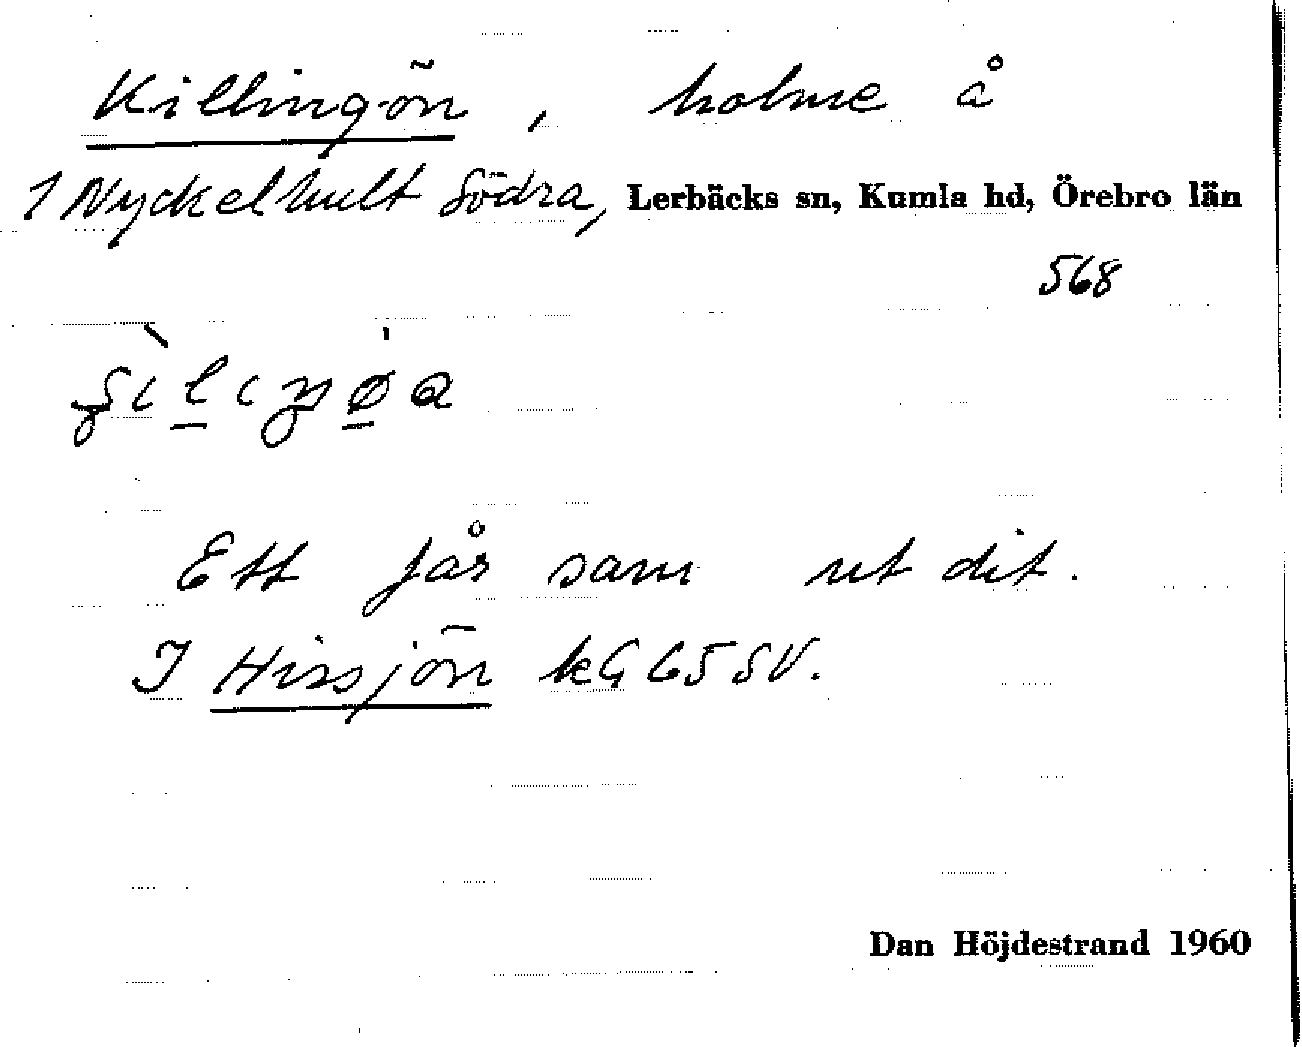 Killingön, holme å
1 Nyckelhult Södra, Lerbäcks sn, Kumla hd, Örebro län
568
Ett får sam ut dit.
I Hissjön kG 65 SV.
Dan Höjdestrand 1960